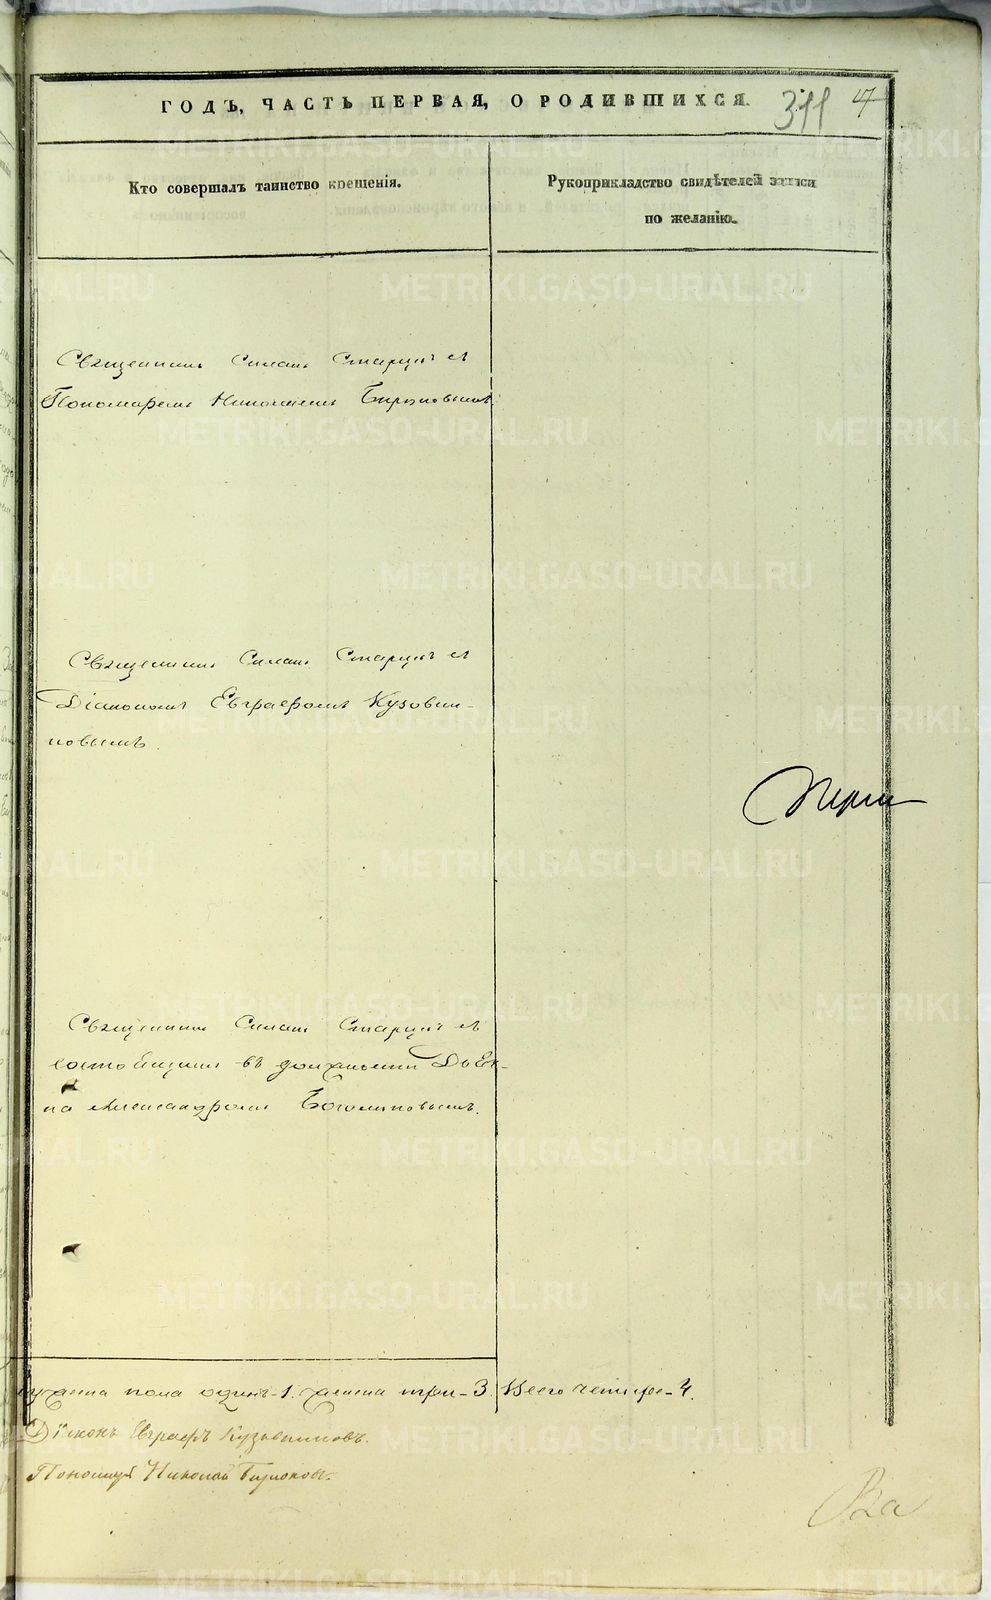 ГОДЪ, ЧАСТЬ ПЕРВАЯ, О РОДИВШИХСЯ.
311
Кто совершалъ таинство крещенія.
Рукоприкладство свидѣтелей записи
по желанію.
Священникъ Симонъ Старцевъ съ
Пономаремъ Николаемъ Бирюковымъ.
Священникъ Старцевъ съ
Діакономъ Евграфомъ Кузовни-
ковымъ.
Священникъ Старцевъ съ
въ должности
на Александромъ Боголюповымъ.
мужеска пола одинъ-1. женска три-3. Всего четыре-4.
Діаконъ Евграфъ Кузовниковъ.
Пономарь Николай Бирюковъ.
METRIKI.GASO-URAL.RU